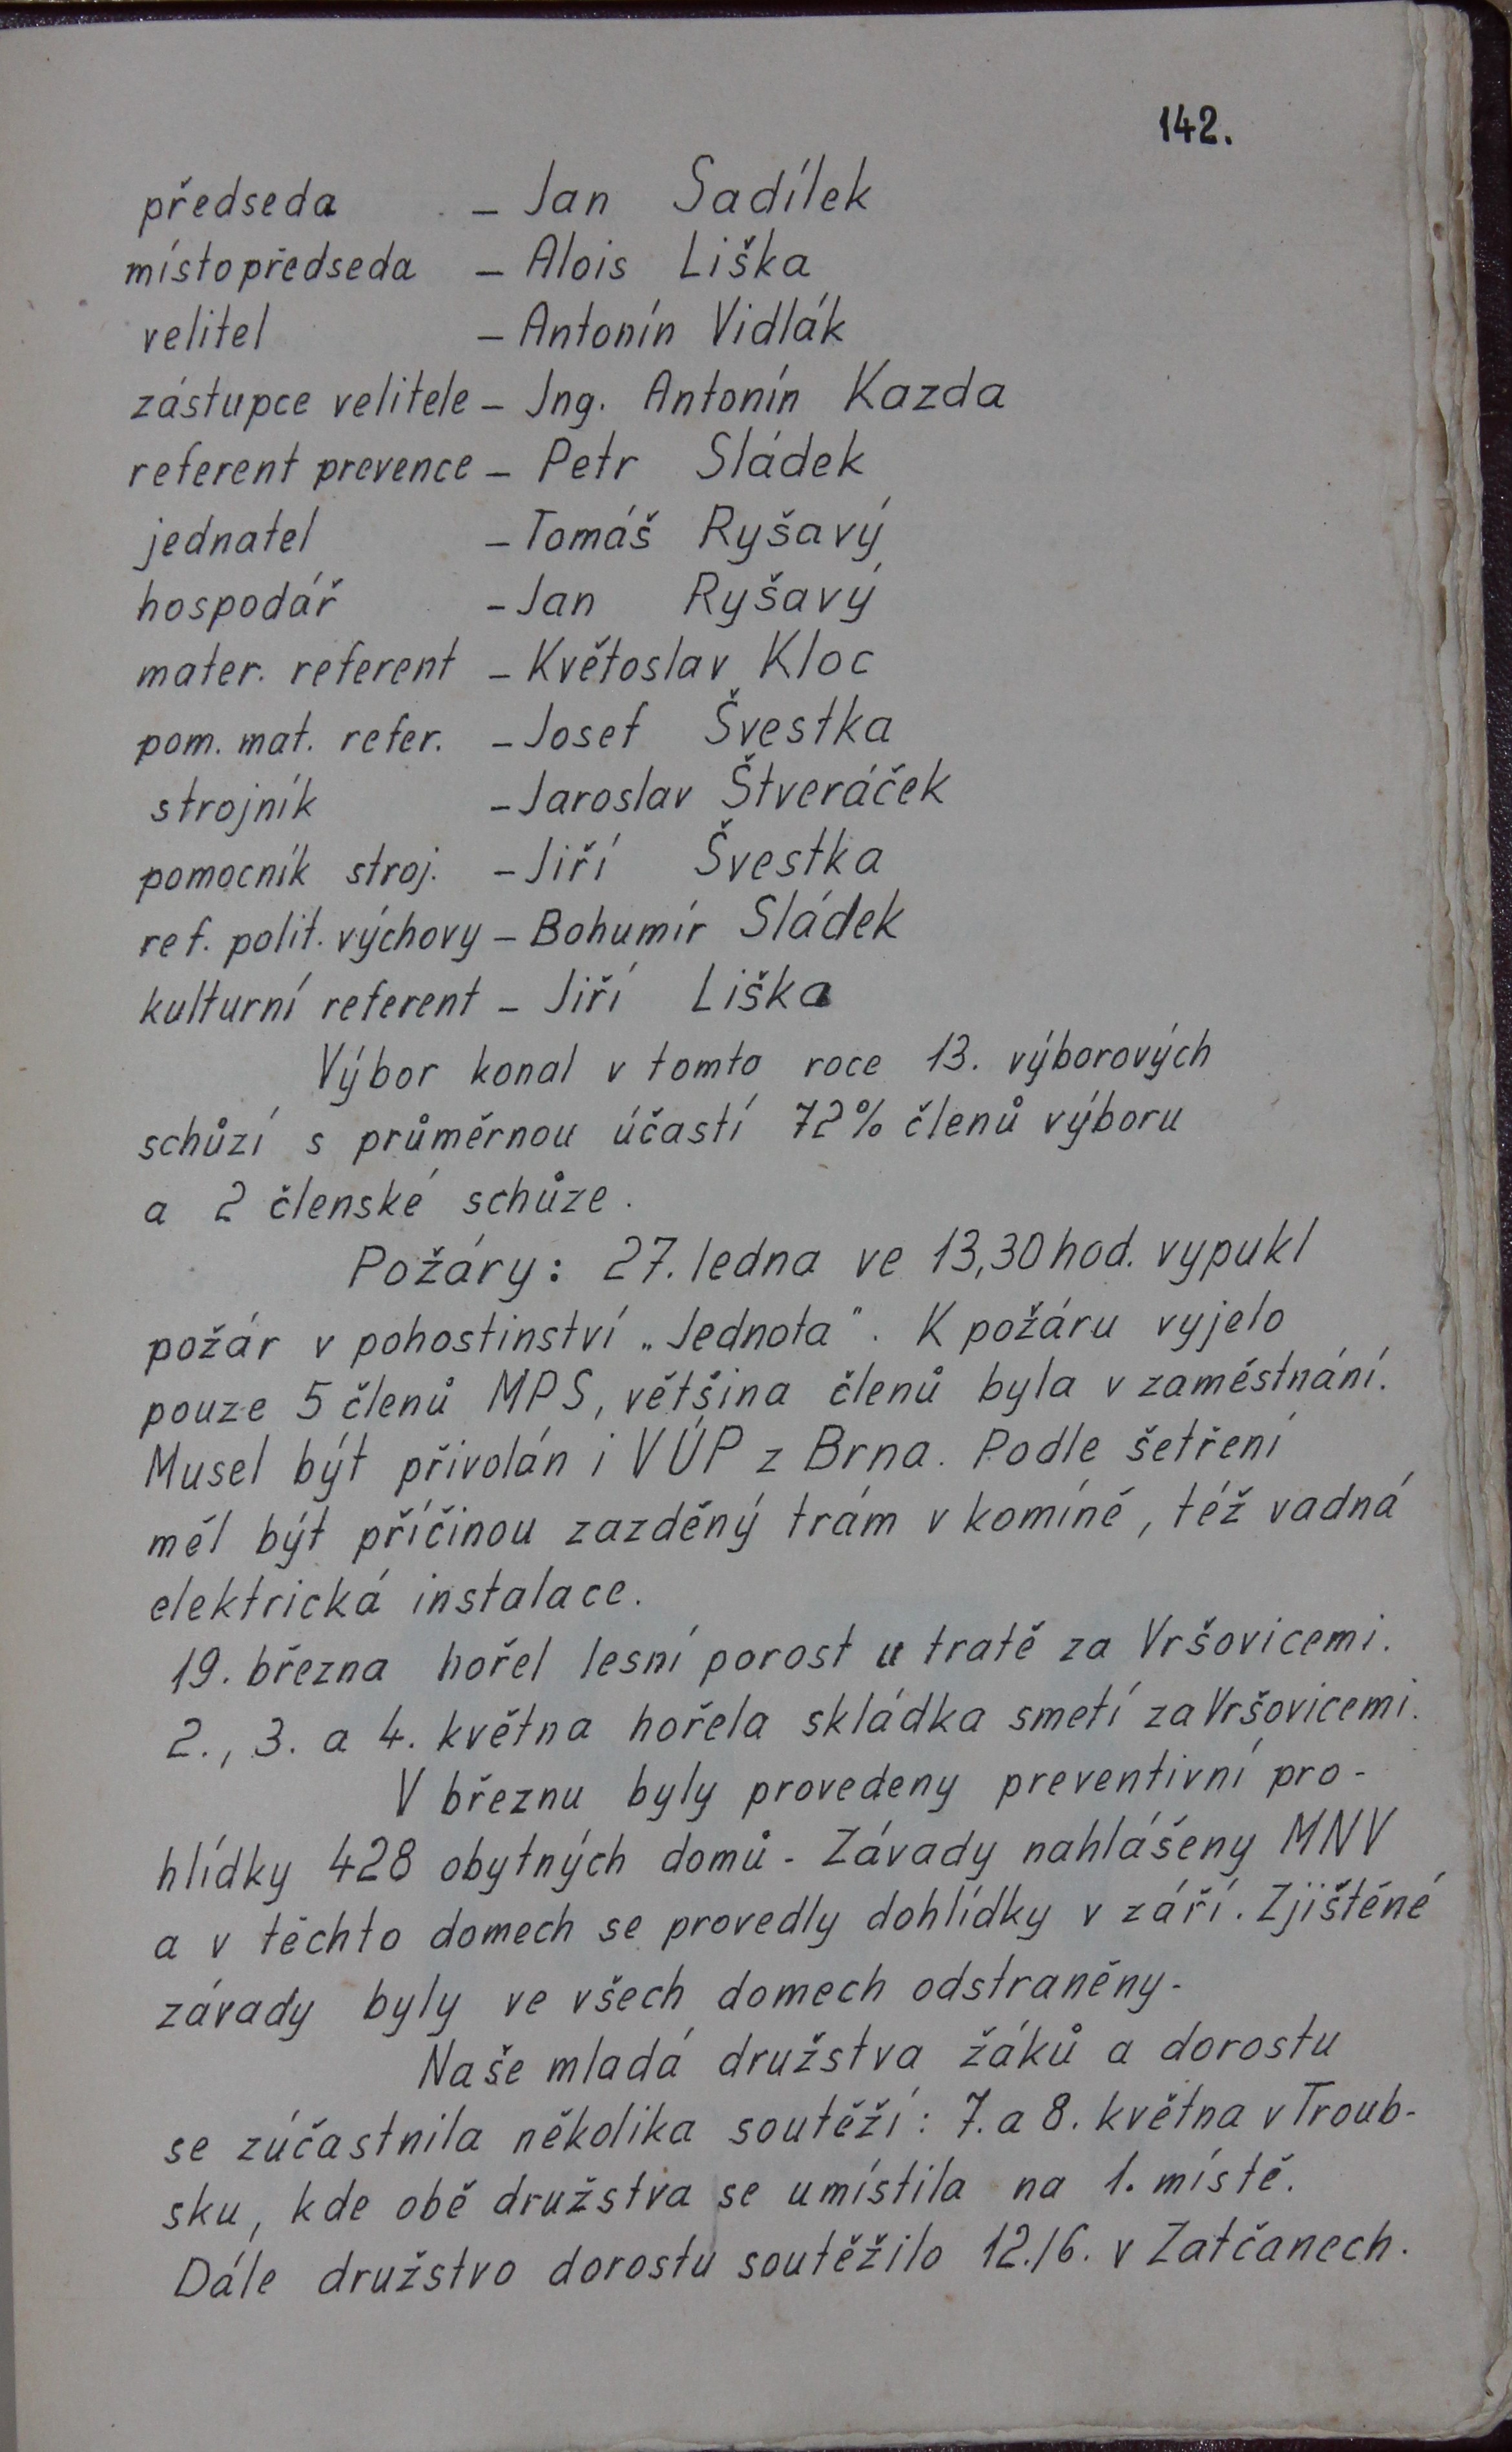 142.
předseda – Jan Sadílek
místopředseda – Alois Liška
velitel – Antonín Vidlák
zástupce velitele – Ing. Antonín Kazda
referent prevence – Petr Sládek
jednatel – Tomáš Ryšavý
hospodář – Jan Ryšavý
mater. referent – Květoslav Kloc
pom. mat. refer. – Josef Švestka
strojník – Jaroslav Štveráček
pomocník stroj. – Jiří Švestka
ref. polit. výchovy – Bohumír Sládek
kulturní referent – Jiří Liška
Výbor konal v tomto roce 13. výborových
schůzí s průměrnou účastí 72% členů výboru
a 2 členské schůze.
Požáry: 27. ledna ve 13,30 hod. vypukl
požár v pohostinství „Jednota". K požáru vyjelo
pouze 5 členů MPS, většina členů byla v zaměstnání.
Musel být přivolán i VÚP z Brna. Podle šetření
měl být příčinou zazděný trám v komíně, též vadná
elektrická instalace.
19. března hořel lesní porost u tratě za Vršovicemi.
2., 3. a 4. května hořela skládka smetí za Vršovicemi.
V březnu byly provedeny preventivní pro-
hlídky 428 obytných domů. Závady nahlášeny MNV
a v těchto domech se provedly dohlídky v září. Zjištěné
závady byly ve všech domech odstraněny.
Naše mladá družstva žáků a dorostu
se zúčastnila několika soutěží: 7. a 8. května v Troub-
sku, kde obě družstva se umístila na 1. místě.
Dále družstvo dorostu soutěžilo 12./6. v Zatčanech.